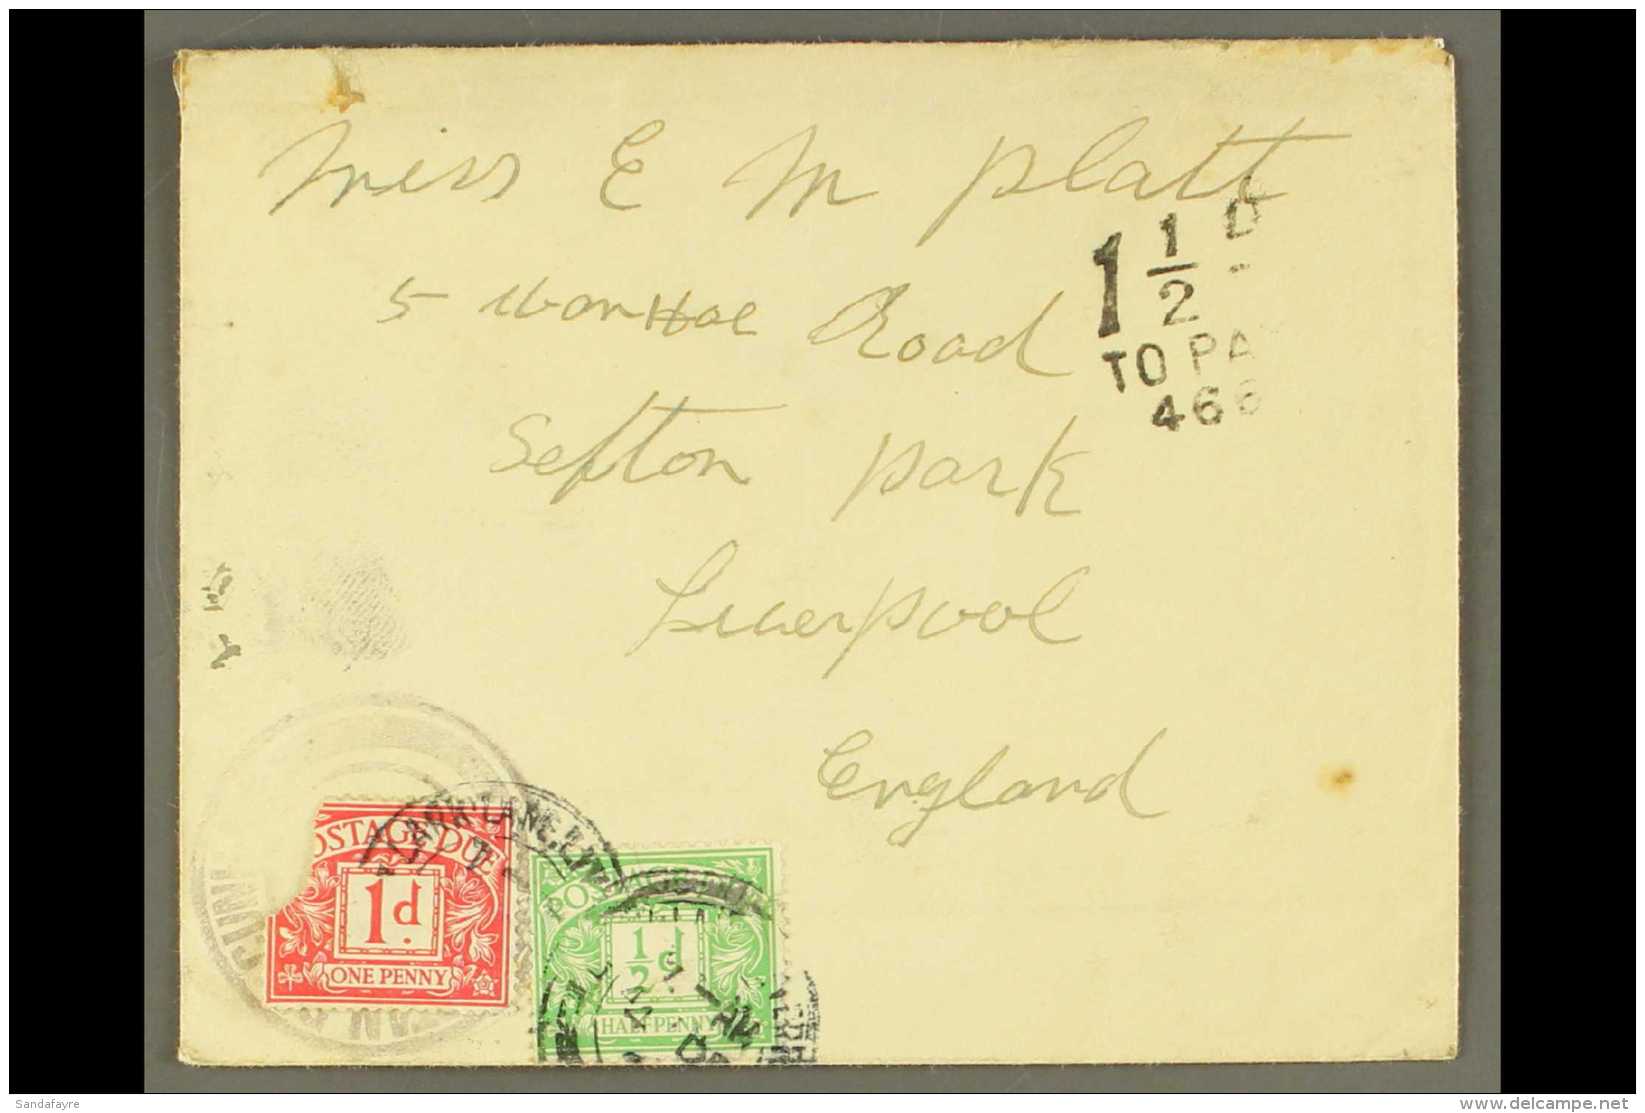 Miss E M Platt
1 1/2 D
5 Ivanhoe Road
TO PA
466
Sefton Park
Liverpool
England
POSTAGE DUE
1d.
ONE PENNY
1/2 d
HALFPENNY
Sandafayre
delcampe.net